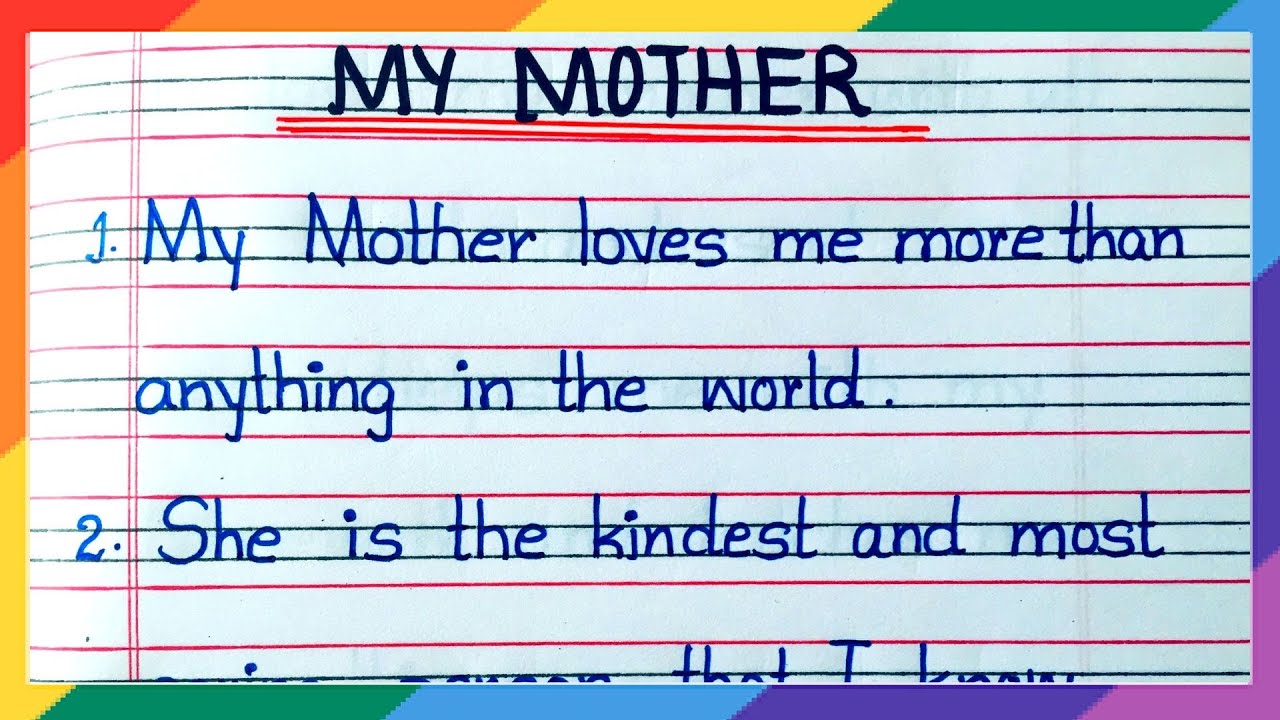 MY MOTHER
1. My Mother loves me more than
anything in the world.
2. She is the kindest and most
person that I know